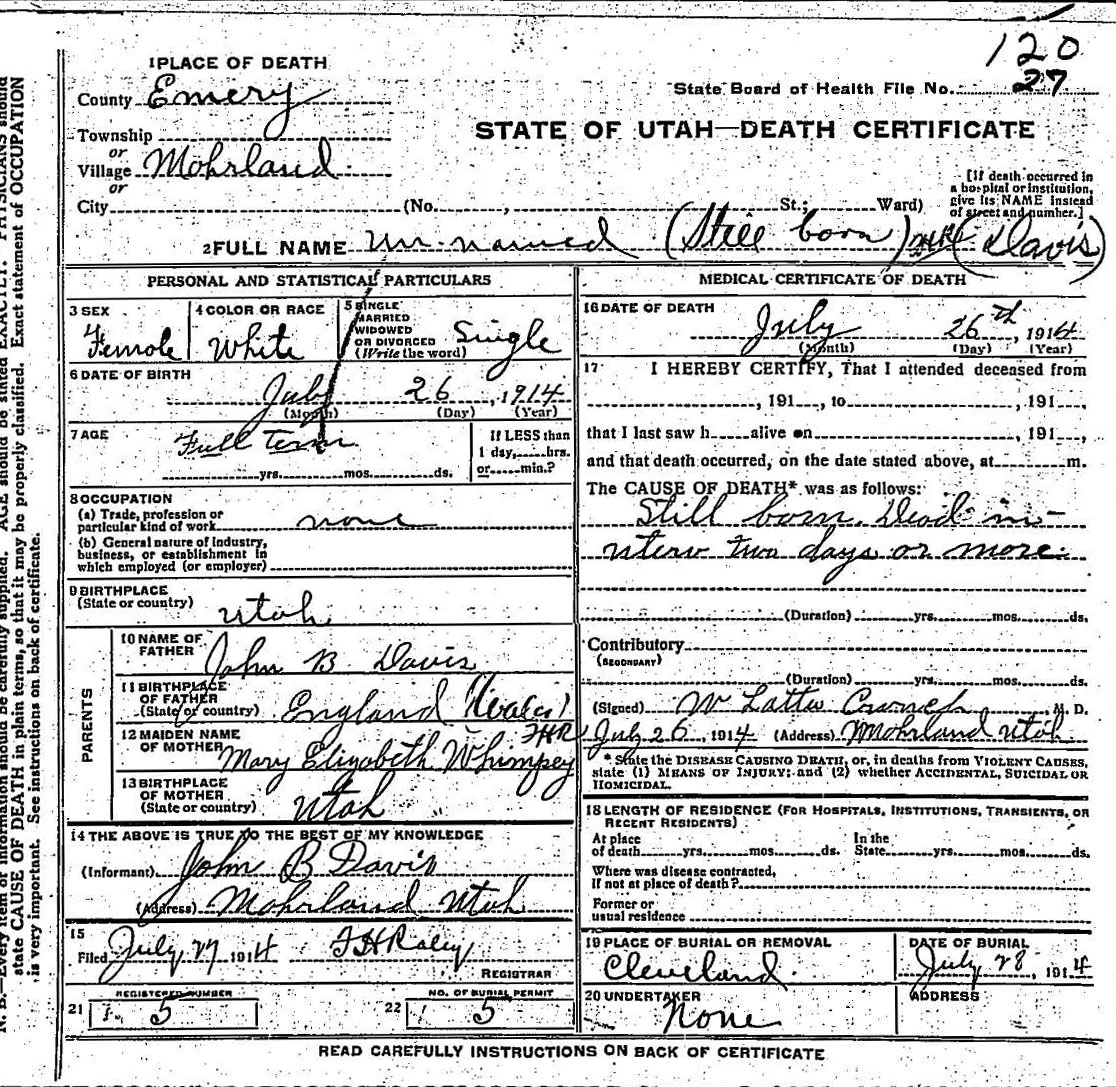 120
1 PLACE OF DEATH
County Emery
State Board of Health File No. 27
Township
or
STATE OF UTAH—DEATH CERTIFICATE
Village Mohrland
or
City (No. , St.; Ward)
[If death occurred in
a hospital or institution,
give its NAME instead
of street and number.]
2 FULL NAME Un-named (Still born) (Davis)
PERSONAL AND STATISTICAL PARTICULARS
3 SEX
Female
4 COLOR OR RACE
White
5 SINGLE
MARRIED
WIDOWED
OR DIVORCED
(Write the word)
Single
6 DATE OF BIRTH
July 26, 1914
(Month) (Day) (Year)
7 AGE
Full term
yrs. mos. ds.
If LESS than
1 day, hrs.
or min.?
8 OCCUPATION
(a) Trade, profession or
particular kind of work none
(b) General nature of Industry,
business, or establishment in
which employed (or employer)
9 BIRTHPLACE
(State or country) Utah
PARENTS
10 NAME OF
FATHER John B. Davis
11 BIRTHPLACE
OF FATHER
(State or country) England (Wales)
FHR
12 MAIDEN NAME
OF MOTHER Mary Elizabeth Whimpey
13 BIRTHPLACE
OF MOTHER
(State or country) Utah
14 THE ABOVE IS TRUE TO THE BEST OF MY KNOWLEDGE
(Informant) John B Davis
(Address) Mohrland Utah
15
Filed July 27 1914 FHRaley
REGISTRAR
21 REGISTERED NUMBER 5
22 NO. OF BURIAL PERMIT 5
MEDICAL CERTIFICATE OF DEATH
16 DATE OF DEATH
July 26th, 1914
(Month) (Day) (Year)
17 I HEREBY CERTIFY, That I attended deceased from
, 191 , to , 191 ,
that I last saw h alive on , 191 ,
and that death occurred, on the date stated above, at m.
The CAUSE OF DEATH* was as follows:
Still born. Dead in-
utero two days or more.
(Duration) yrs. mos. ds.
Contributory
(SECONDARY)
(Duration) yrs. mos. ds.
(Signed) W Latta M. D.
July 26, 1914 (Address) Mohrland Utah
* State the DISEASE CAUSING DEATH, or, in deaths from VIOLENT CAUSES,
state (1) MEANS OF INJURY; and (2) whether ACCIDENTAL, SUICIDAL OR
HOMICIDAL.
18 LENGTH OF RESIDENCE (FOR HOSPITALS, INSTITUTIONS, TRANSIENTS, OR
RECENT RESIDENTS)
At place
of death yrs. mos. ds.
In the
State yrs. mos. ds.
Where was disease contracted,
If not at place of death?
Former or
usual residence
19 PLACE OF BURIAL OR REMOVAL
Cleveland.
DATE OF BURIAL
July 28, 1914
20 UNDERTAKER
None
ADDRESS
READ CAREFULLY INSTRUCTIONS ON BACK OF CERTIFICATE
N. B.—Every item of information should be carefully supplied. AGE should be stated EXACTLY. PHYSICIANS should
state CAUSE OF DEATH in plain terms, so that it may be properly classified. Exact statement of OCCUPATION
is very important. See instructions on back of certificate.